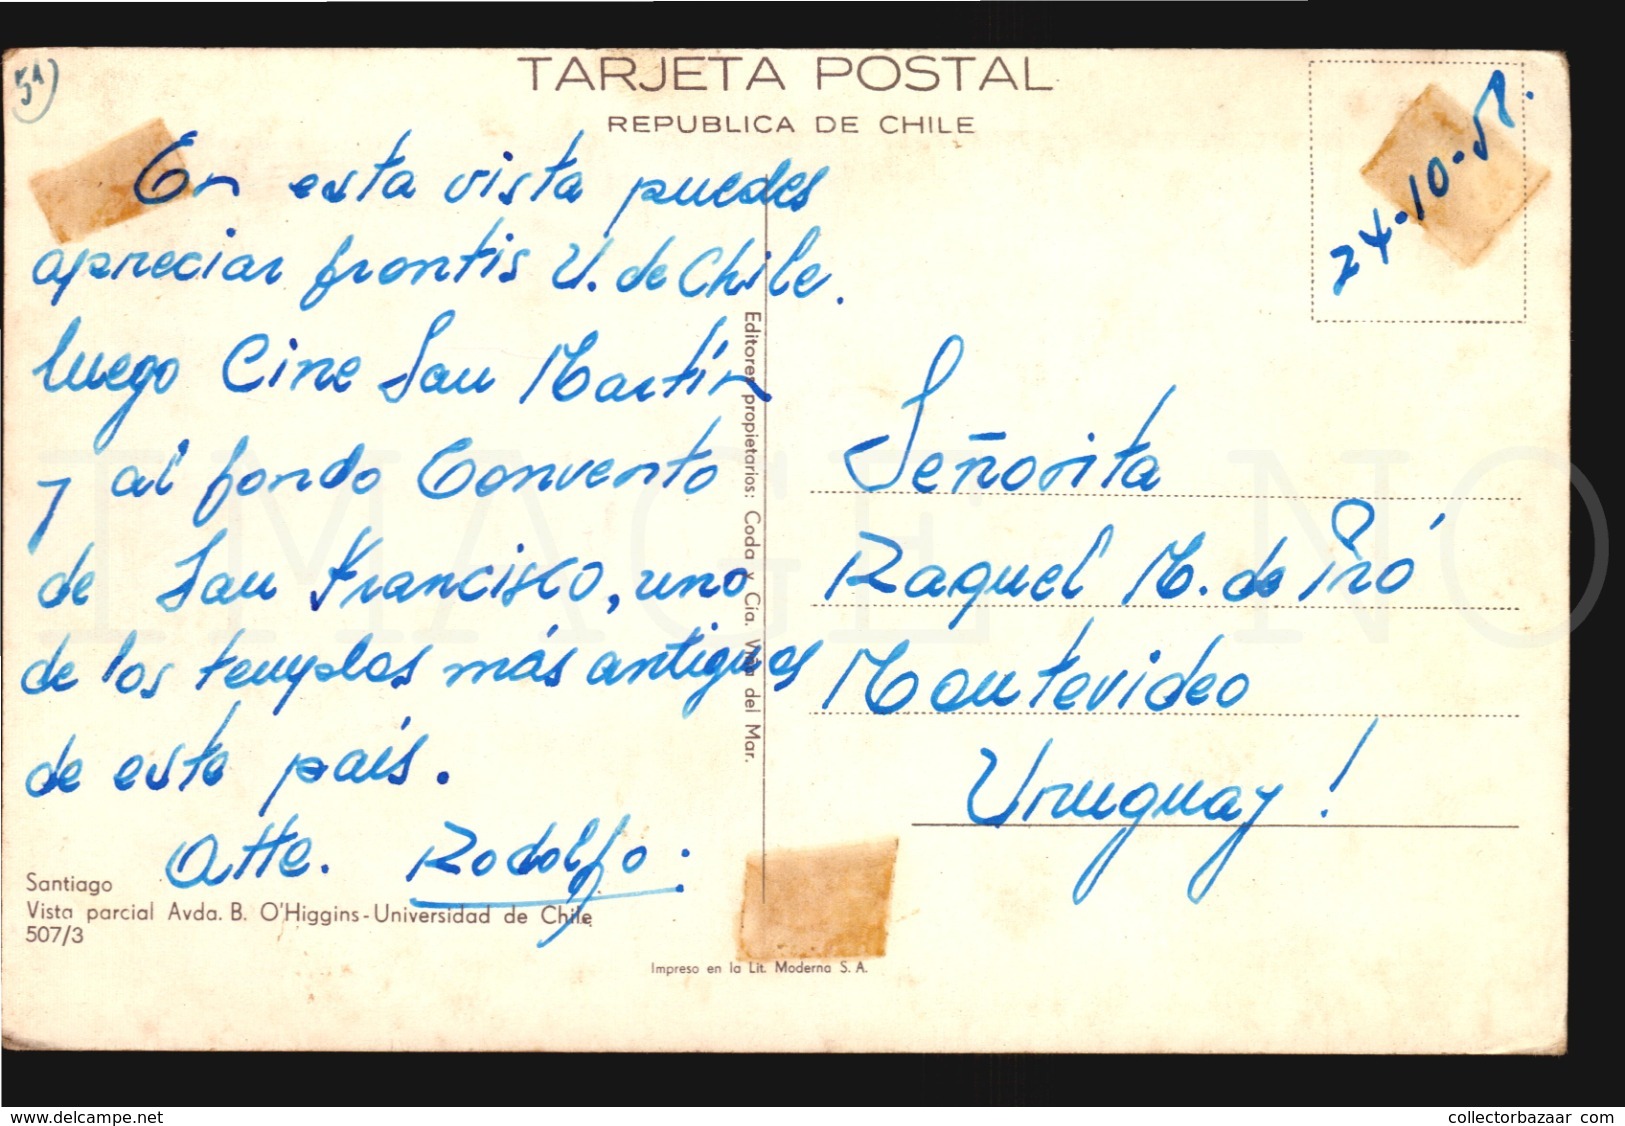 5ª)
TARJETA POSTAL
REPUBLICA DE CHILE
24-10-58.
En esta vista puedes
apreciar frontis U. de Chile.
luego Cine San Martín
y al fondo Convento
de San Francisco, uno
de los templos más antiguos
de este país.
Atte. Rodolfo.
Santiago
Vista parcial Avda. B. O'Higgins-Universidad de Chile
507/3
Editores propietarios: Coda y Cia. Viña del Mar.
Impreso en la Lit. Moderna S. A.
Señorita
Raquel M. de Piró
Montevideo
Uruguay!
IMAGE NO
www.delcampe.net
collectorbazaar_com